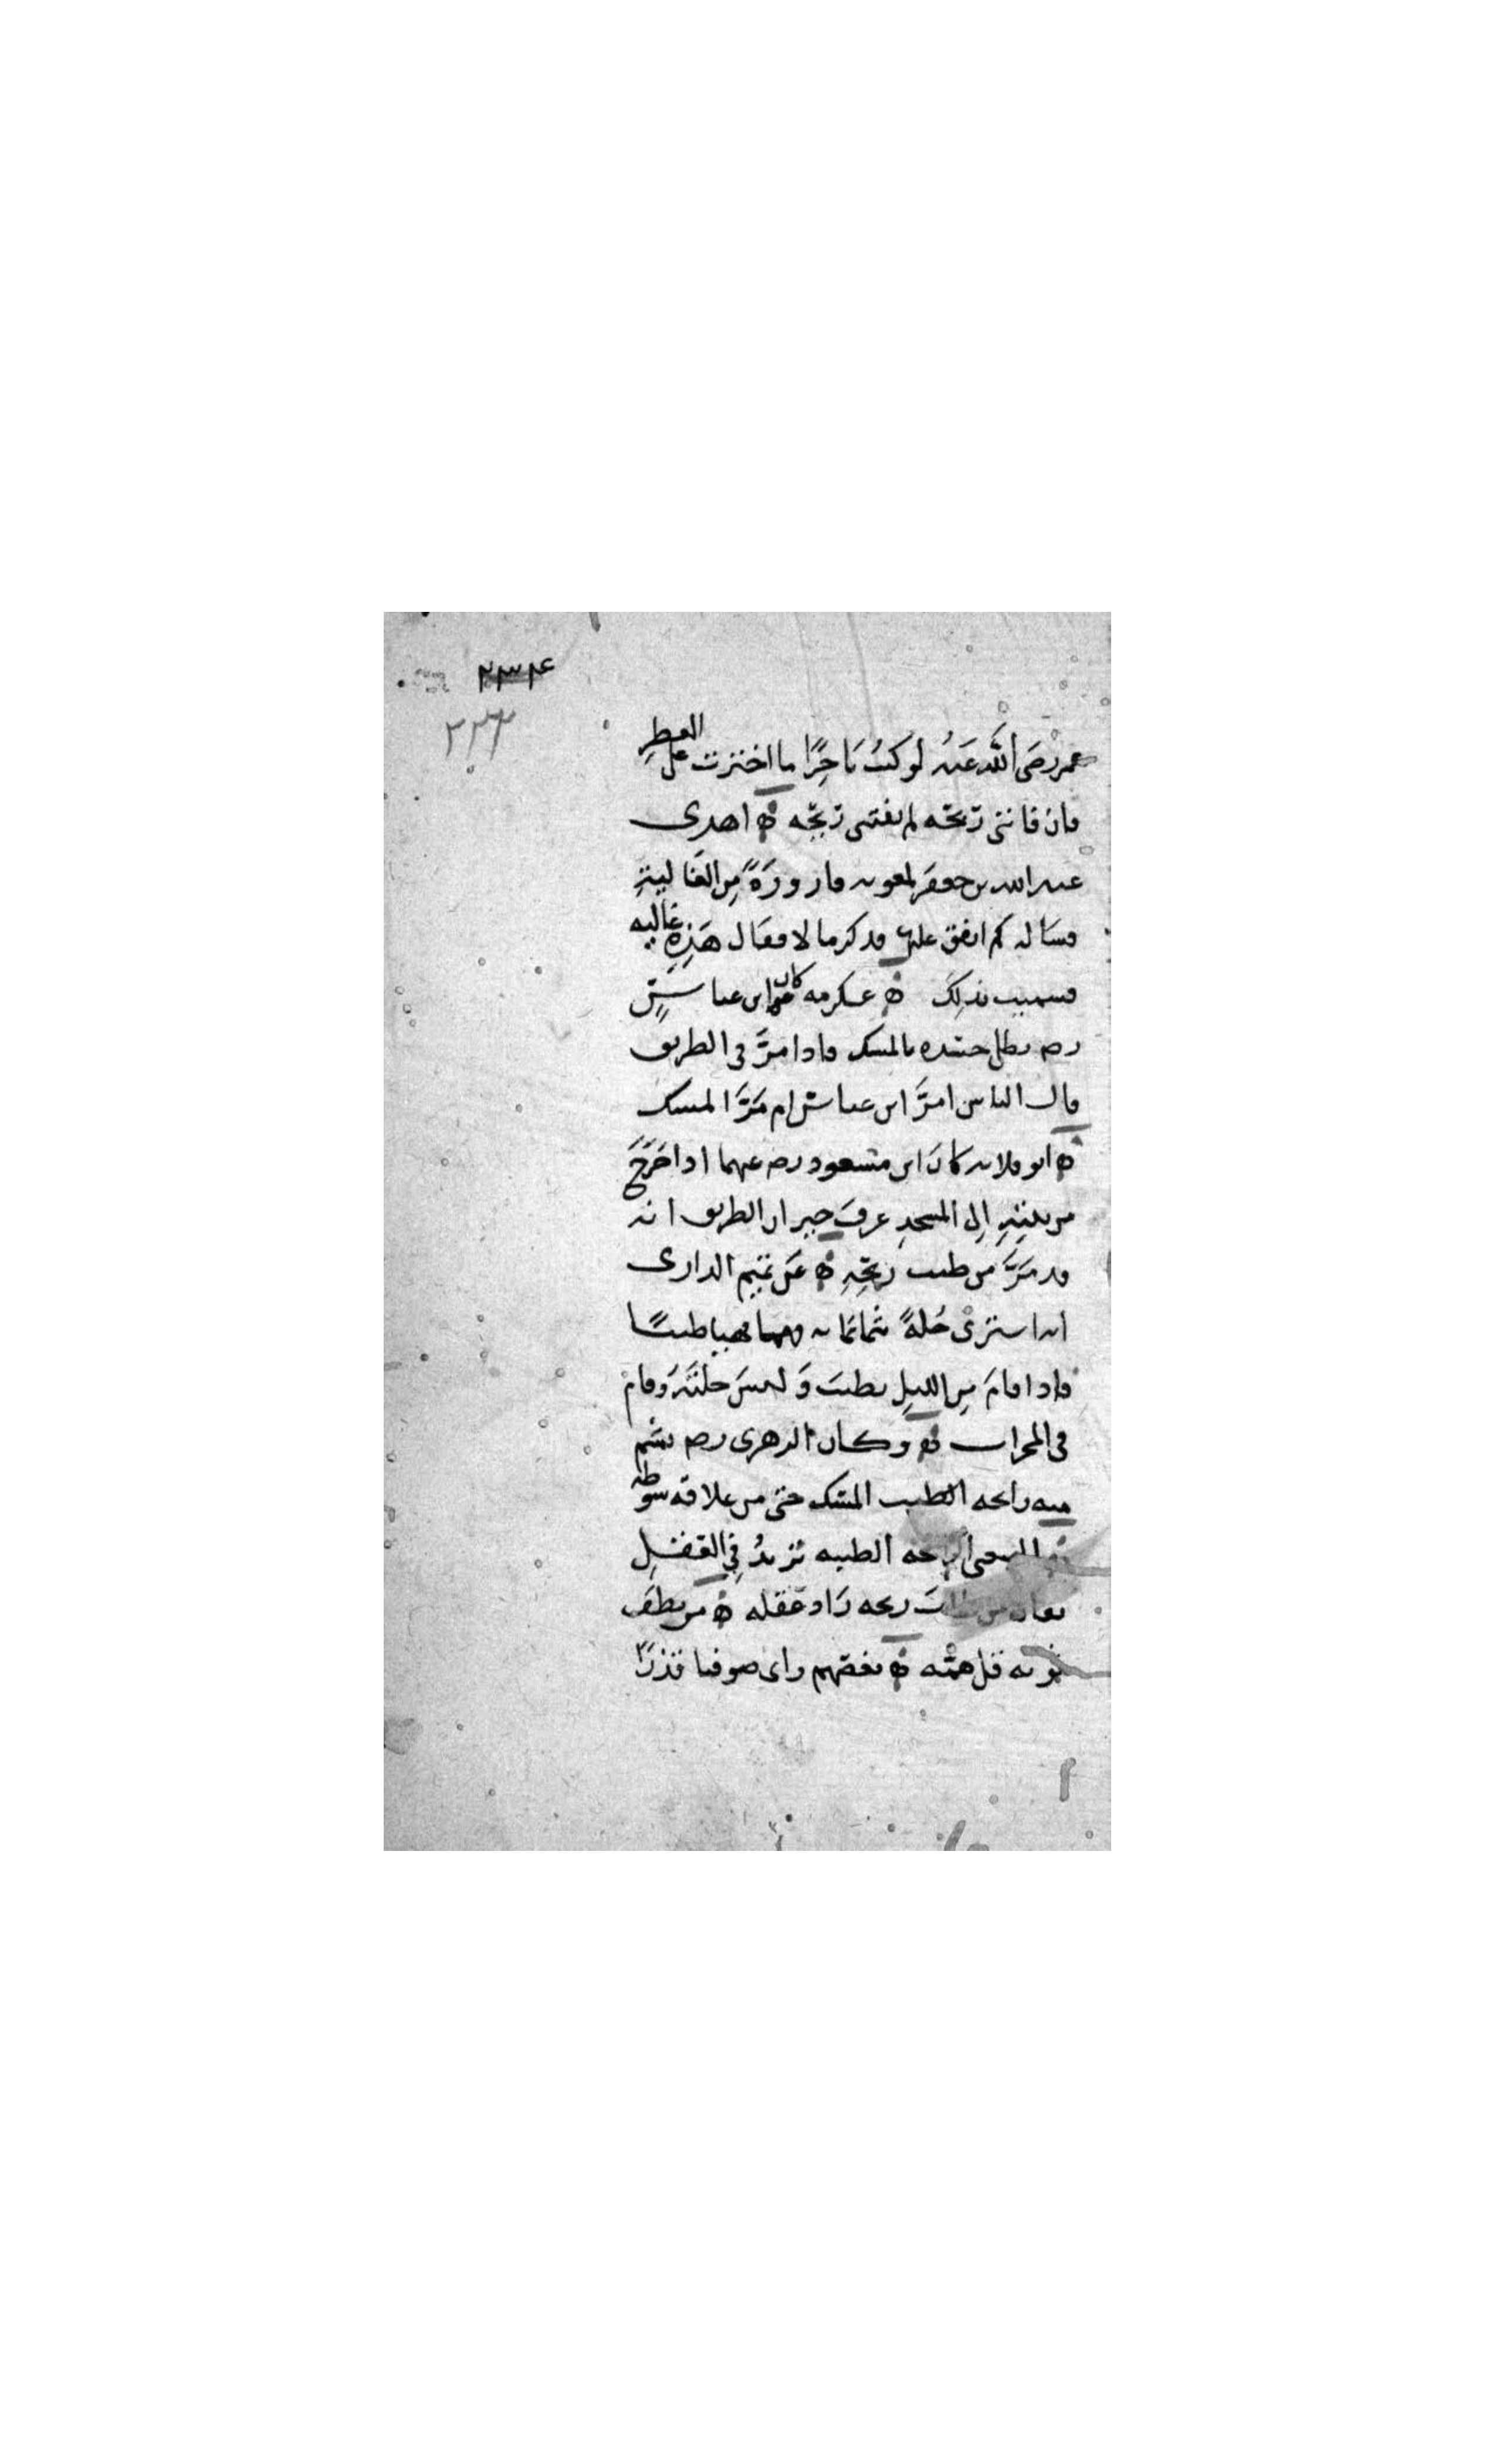 ٢٣٤
٢٣٣
عمر رضى الله عنه لو كنت تاجرًا ما اخترت على العطر
فان فاتنى ربحه لم يفتنى ريحه ه اهدى
عبد الله بن جعفر لمعويه قارورةً من الغالية
فساله كم انفق عليها فذكر مالا فقال هذه غاليه
فسميت بذلك ه عكرمه كان ابن عباس
رضه يطلى جسده بالمسك فاذا مرّ فى الطريق
قال الناس امرّ ابن عباس ام مرّ المسك
ه ابو قلابه كان ابن مسعود رضه عنهما اذا خرج
من بيته الى المسجد عرف جيران الطريق انه
قد مرّ من طيب ريحه ه عن تميم الدارى
انه اشترى حُلةً بثمانمائه وهيا طيبًا
فاذا قام من الليل تطيب ولبس حلته وقام
فى المحراب ه وكان الزهرى رضه يشم
منه رائحه الطيب المسك حتى من علاقه سوطه
الشعبى الرائحه الطيبه تزيدُ فى العقل
يقال من طابت ريحه زاد عقله ه من نظف
ثوبه قل همّه ه بعضهم راى صوفيا قذرًا